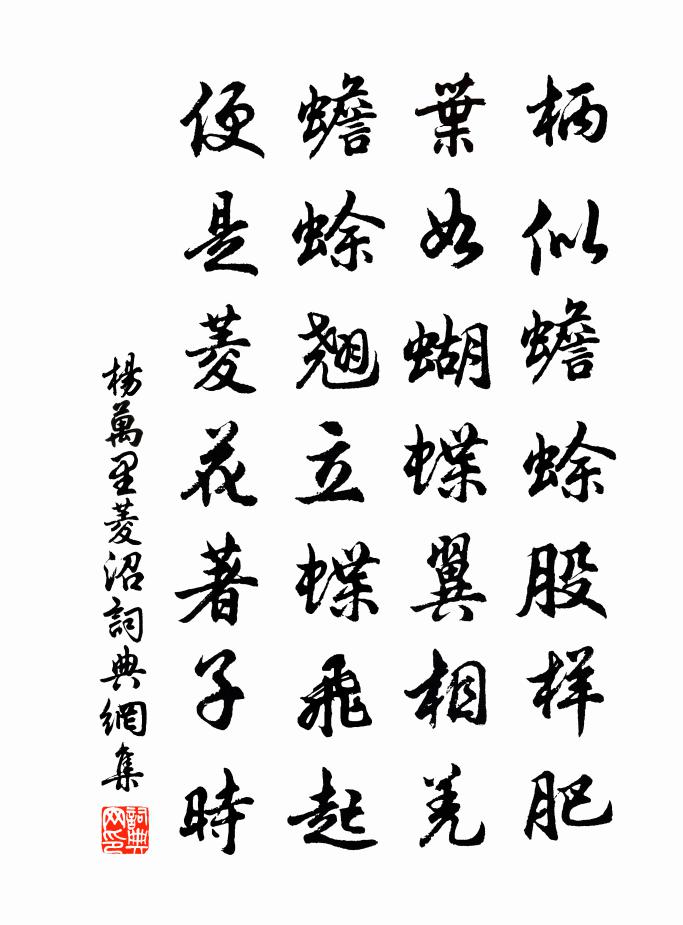 柄似蟾蜍股样肥
葉如蝴蝶翼相差
蟾蜍翹立蝶飛起
便是菱花著子時
楊萬里菱沼詞典網集
詞典网印